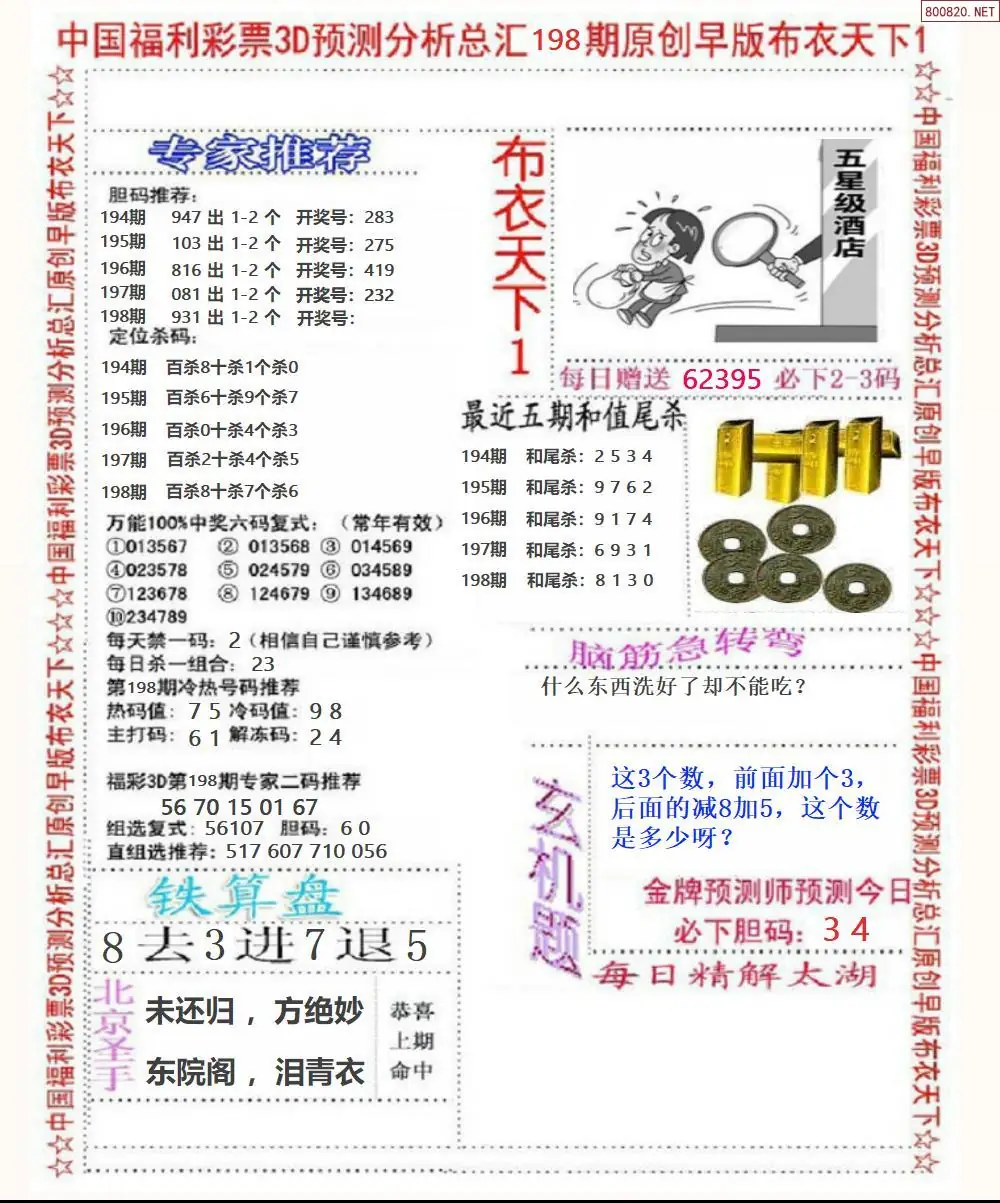 800820.NET
中国福利彩票3D预测分析总汇198期原创早版布衣天下1
☆☆中国福利彩票3D预测分析总汇原创早版布衣天下☆☆中国福利彩票3D预测分析总汇原创早版布衣天下☆☆
专家推荐
胆码推荐:
194期 947 出 1-2 个 开奖号: 283
195期 103 出 1-2 个 开奖号: 275
196期 816 出 1-2 个 开奖号: 419
197期 081 出 1-2 个 开奖号: 232
198期 931 出 1-2 个 开奖号:
定位杀码:
194期 百杀8十杀1个杀0
195期 百杀6十杀9个杀7
196期 百杀0十杀4个杀3
197期 百杀2十杀4个杀5
198期 百杀8十杀7个杀6
万能100%中奖六码复式: （常年有效）
①013567 ② 013568 ③ 014569
④023578 ⑤ 024579 ⑥ 034589
⑦123678 ⑧ 124679 ⑨ 134689
⑩234789
每天禁一码: 2（相信自己谨慎参考）
每日杀一组合: 23
第198期冷热号码推荐
热码值: 7 5 冷码值: 9 8
主打码: 6 1 解冻码: 2 4
福彩3D第198期专家二码推荐
56 70 15 01 67
组选复式: 56107 胆码: 6 0
直组选推荐: 517 607 710 056
铁算盘
8去3进7退5
北京圣手
未还归，方绝妙
东院阁，泪青衣
恭喜
上期
命中
布衣天下1
五星级酒店
每日赠送 62395 必下2-3码
最近五期和值尾杀
194期 和尾杀: 2 5 3 4
195期 和尾杀: 9 7 6 2
196期 和尾杀: 9 1 7 4
197期 和尾杀: 6 9 3 1
198期 和尾杀: 8 1 3 0
脑筋急转弯
什么东西洗好了却不能吃?
玄机题
这3个数，前面加个3，
后面的减8加5，这个数
是多少呀?
金牌预测师预测今日
必下胆码: 3 4
每日精解太湖
☆☆中国福利彩票3D预测分析总汇原创早版布衣天下☆☆中国福利彩票3D预测分析总汇原创早版布衣天下☆☆